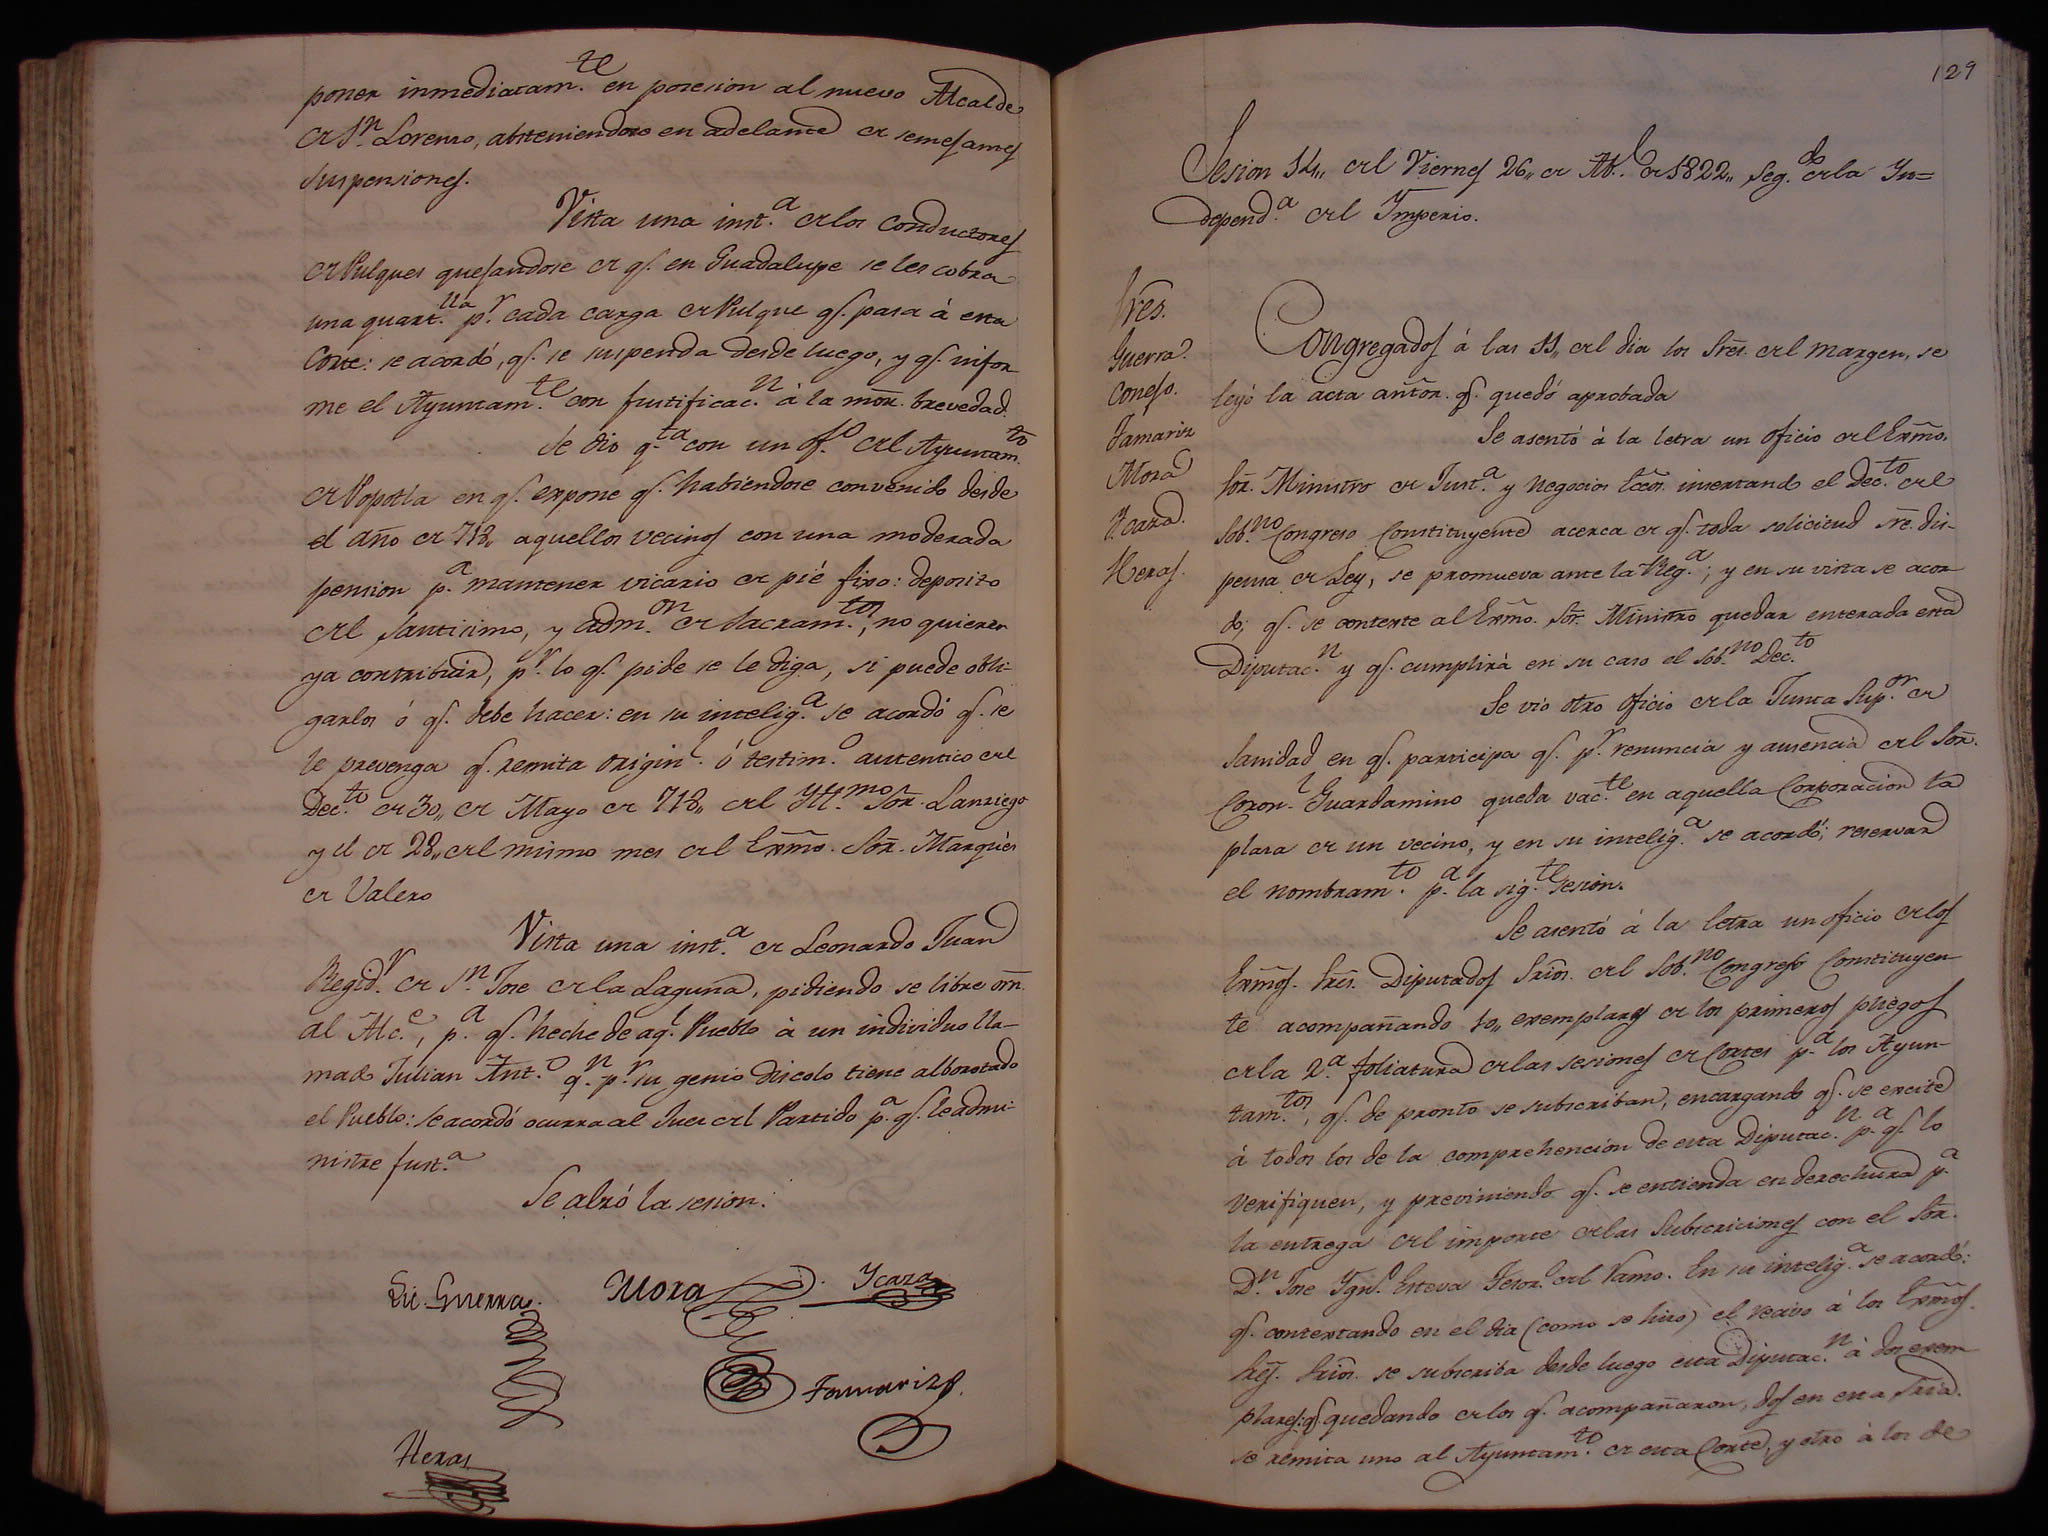 poner inmediatam.te en posesion al nuevo Alcalde
de S.n Lorenzo, absteniendose en adelante de semejantes
suspensiones.
Vista una inst.a de los conductores
de Pulques quejandose de q.e en Guadalupe se les cobra
una quart.lla p.r cada carga de Pulque q.e pasa á esta
Corte: se acordó, q.e se suspenda desde luego, y q.e infor
me el Ayuntam.te con justificac.n á la mõr. brevedad.
Se dio q.ta con un of.o del Ayuntam.to
de Popotla en q.e expone q.e habiendose convenido desde
el año de 718,, aquellos vecinos con una moderada
pension p.a mantener vicario de pié fixo: deposito
del Santisimo, y adm.on de Sacram.tos, no quieren
ya contribuir, p.r lo q.e pide se le diga, si puede obli-
garlos ó q.e debe hacer: en su intelig.a se acordó q.e se
le prevenga q.e remita origin.l ó testim.o autentico del
Dec.to de 30,, de Mayo de 718,, del Yll.mo Sõr. Lanziego
y el de 28,, del mismo mes del Exmõ. Sõr. Marqués
de Valero
Vista una inst.a de Leonardo Juan
Regid.r de S.n Jose de la Laguna, pidiendo se libre orñ.
al Alc.e, p.a q.e heche de aq.l Pueblo á un individuo lla-
mado Julian Ant.o q.n p.r su genio discolo tiene alborotado
el Pueblo: se acordó ocurra al Juez del Partido p.a q.e le admi-
nistre just.a
Se alzó la sesion.
Lic. Guerra.
Mora
Ycaza
Tamariz
Heras
129
Sesion 14,, del Viernes 26,, de Ab.l de 1822,, Seg.do de la In=
depend.a del Imperio.
Sres.
Guerra.
Conejo.
Tamariz
Mora
Ycaza.
Heras.
Congregados á las 11,, del dia los Sres. del margen, se
leyó la acta antõr. q.e quedó aprobada
Se asentó á la letra un oficio del Exmõ.
Sõr. Ministro de Just.a y Negocios Eccõs. insertando el Dec.to del
Sob.no Congreso Constituyente acerca de q.e toda solicitud sre. dis-
pensa de Ley, se promueva ante la Reg.a; y en su vista se acor
dó; q.e se conteste al Exmõ. Sõr. Ministro quedar enterada esta
Diputac.n y q.e cumplirá en su caso el Sob.no Dec.to
Se vio otro oficio de la Junta Sup.or de
Sanidad en q.e participa q.e p.r renuncia y ausencia del Sõr.
Coron.l Guardamino queda vac.te en aquella Corporacion la
plaza de un vecino, y en su intelig.a se acordó; reservar
el nombram.to p.a la sig.te Sesion.
Se asentó á la letra un oficio de los
Exmõs. Sres. Diputados Sriõs. del Sob.no Congreso Constituyen
te acompañando 10,, exemplares de los primeros pliegos
de la 2.a foliatura de las sesiones de Cortes p.a los Ayun-
tam.tos, q.e de pronto se subscriban, encargando q.e se excite
á todos los de la comprehencion de esta Diputac.n p.a q.e lo
verifiquen, y previniendo q.e se entienda en derechura p.a
la entrega del importe de las Subscriciones con el Sõr.
D.n Jose Ygn.o Esteva Tesor.o del Ramo. En su intelig.a se acordó:
q.e contestando en el dia (como se hizo) el recivo á los Exmõs.
Sres. Sriõs. se subscriba desde luego esta Diputac.n á dos exem
plares: q.e quedando de los q.e acompañaron, dos en esta Sria.
se remita uno al Ayuntam.to de esta Corte, y otro á los de